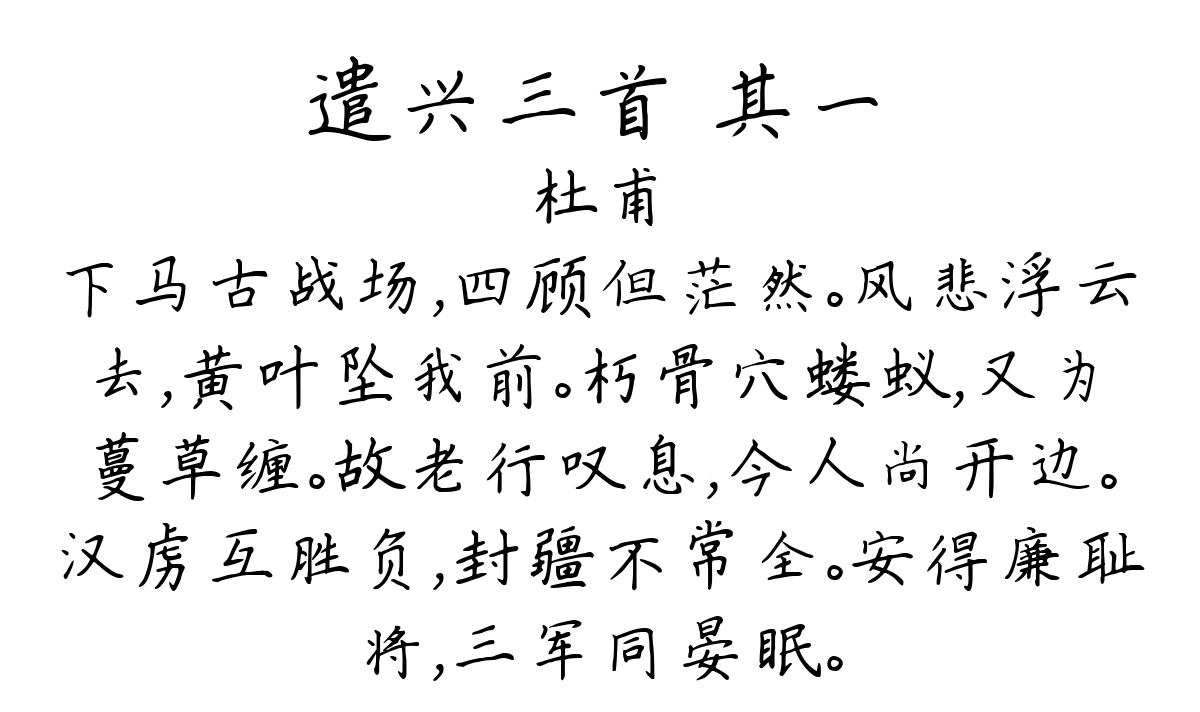 遣兴三首 其一
杜甫
下马古战场,四顾但茫然。风悲浮云
去,黄叶坠我前。朽骨穴蝼蚁,又为
蔓草缠。故老行叹息,今人尚开边。
汉虏互胜负,封疆不常全。安得廉耻
将,三军同晏眠。